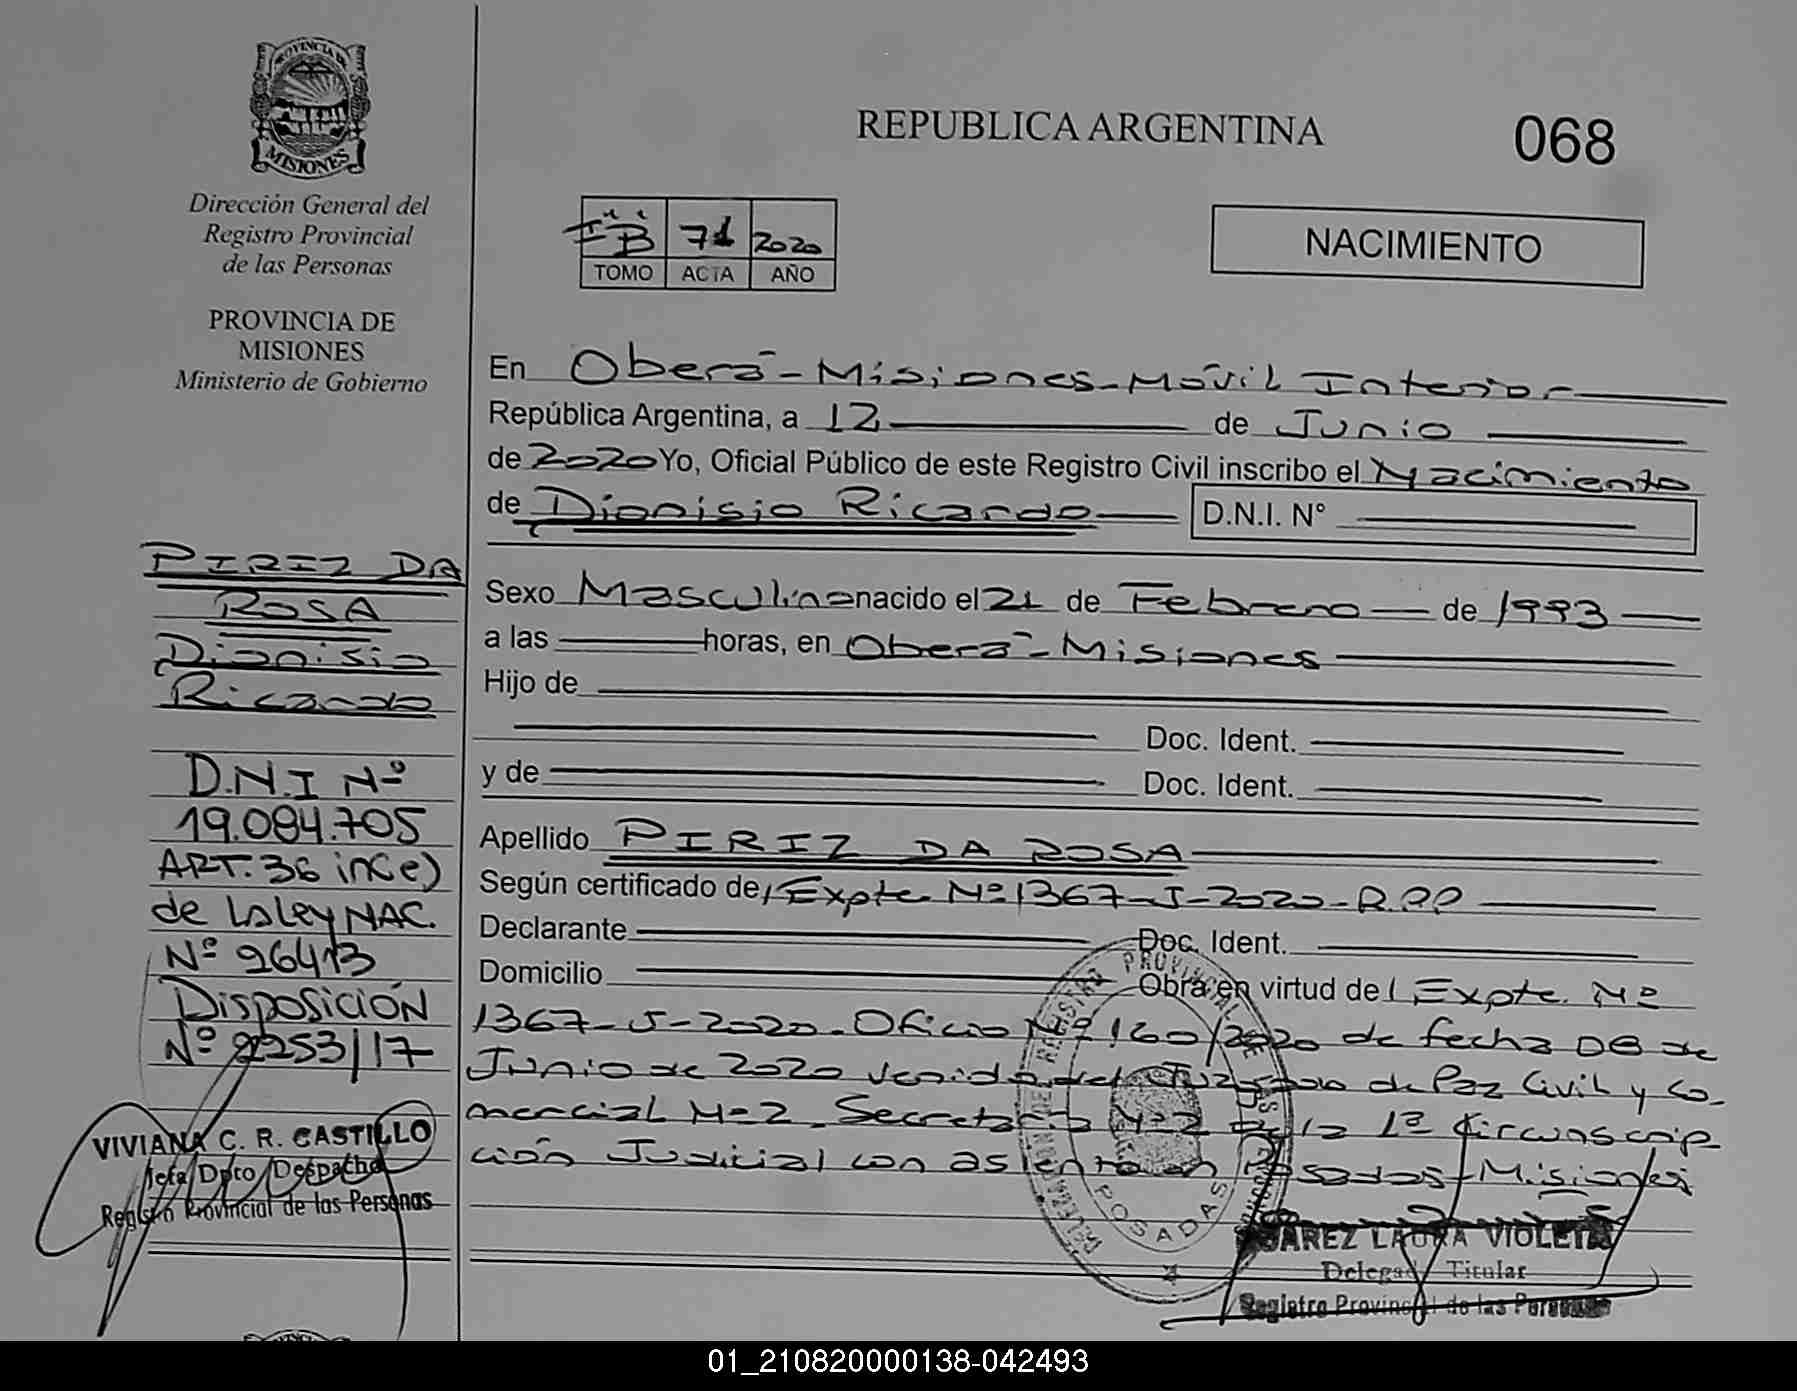 PROVINCIA DE
MISIONES
Dirección General del
Registro Provincial
de las Personas
PROVINCIA DE
MISIONES
Ministerio de Gobierno
PIRIZ DA
ROSA
Dionisio
Ricardo
D.N.I Nº
19.084.705
ART. 36 inc e)
de la Ley NAC.
Nº 26413
Disposición
Nº 2253/17
VIVIANA C. R. CASTILLO
Jefa Dpto Despacho
Registro Provincial de las Personas
REPUBLICA ARGENTINA
068
71 2020
TOMO ACTA AÑO
NACIMIENTO
En Oberá - Misiones - Móvil Interior
República Argentina, a 12 de Junio
de 2020 Yo, Oficial Público de este Registro Civil inscribo el Nacimiento
de Dionisio Ricardo D.N.I. N°
Sexo Masculino nacido el 21 de Febrero de 1993
a las horas, en Oberá - Misiones
Hijo de
Doc. Ident.
y de Doc. Ident.
Apellido PIRIZ DA ROSA
Según certificado de Expte Nº 1367-J-2020-R.P.P
Declarante Doc. Ident.
Domicilio Obra en virtud de Expte. Nº
1367-J-2020. Oficio Nº 160/2020 de fecha 08 de
Junio de 2020 venido del Juzgado de Paz Civil y Co-
mercial Nº 2, Secretaría Nº 2 de la 1ª Circunscrip-
ción Judicial con asiento en Posadas - Misiones
POSADAS
SUAREZ LAURA VIOLETA
Delegada Titular
Registro Provincial de las Personas
01_210820000138-042493